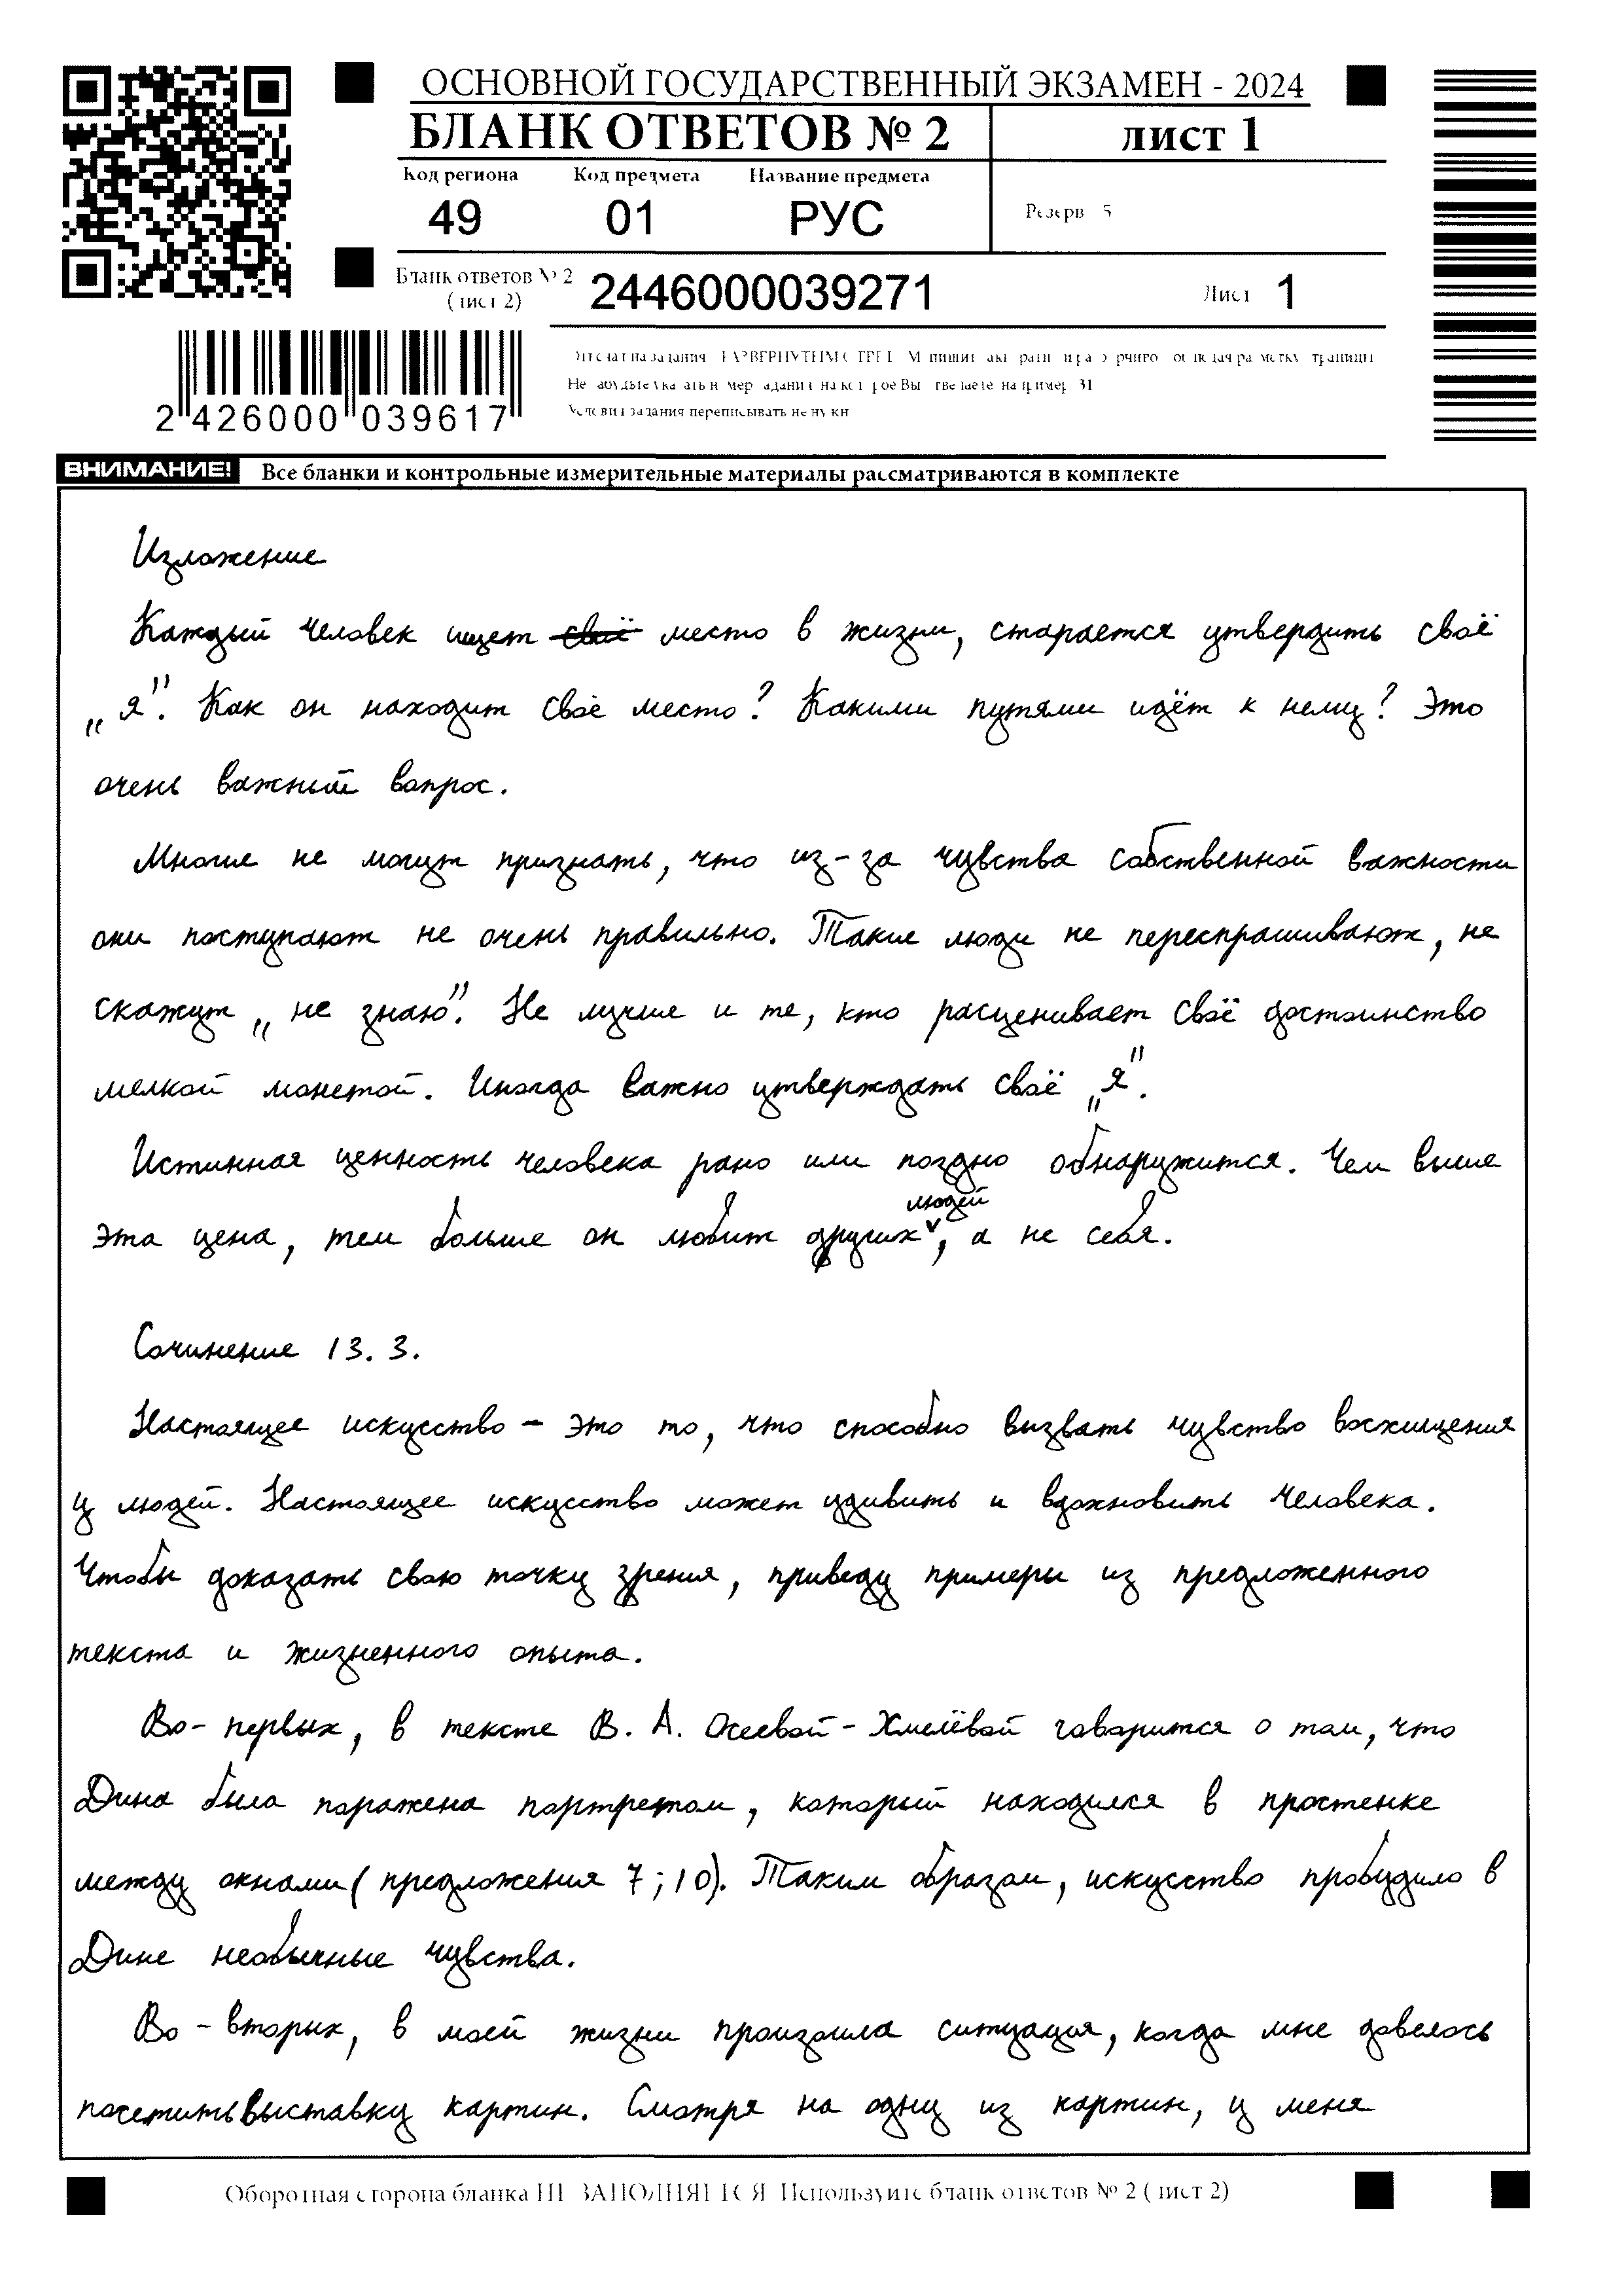 ОСНОВНОЙ ГОСУДАРСТВЕННЫЙ ЭКЗАМЕН - 2024
БЛАНК ОТВЕТОВ № 2 лист 1
Код региона Код предмета Название предмета
49 01 РУС Резерв 5
Бланк ответов № 2
(лист 2) 2446000039271 Лист 1
2 426000 039617
Не
задания переписывать не
ВНИМАНИЕ! Все бланки и контрольные измерительные материалы рассматриваются в комплекте
Изложение
Каждый человек ищет своё место в жизни, старается утвердить своё
„я". Как он находит своё место? Какими путями идёт к нему? Это
очень важный вопрос.
Многие не могут признать, что из-за чувства собственной важности
они поступают не очень правильно. Такие люди не переспрашивают, не
скажут „не знаю". Не лучше и те, кто расценивает своё достоинство
мелкой монетой. Иногда важно утверждать своё „я".
Истинная ценность человека рано или поздно обнаружится. Чем выше
людей
эта цена, тем больше он любит других, а не себя.
Сочинение 13.3.
Настоящее искусство – это то, что способно вызвать чувство восхищения
у людей. Настоящее искусство может удивить и вдохновить человека.
Чтобы доказать свою точку зрения, приведу примеры из предложенного
текста и жизненного опыта.
Во-первых, в тексте В. А. Осеевой-Хмелёвой говорится о том, что
Дина была поражена портретом, который находился в простенке
между окнами (предложения 7;10). Таким образом, искусство пробудило в
Дине необычные чувства.
Во-вторых, в моей жизни произошла ситуация, когда мне довелось
посетить выставку картин. Смотря на одну из картин, у меня
Оборотная сторона бланка НЕ ЗАПОЛНЯЕТСЯ Используйте бланк ответов № 2 (лист 2)